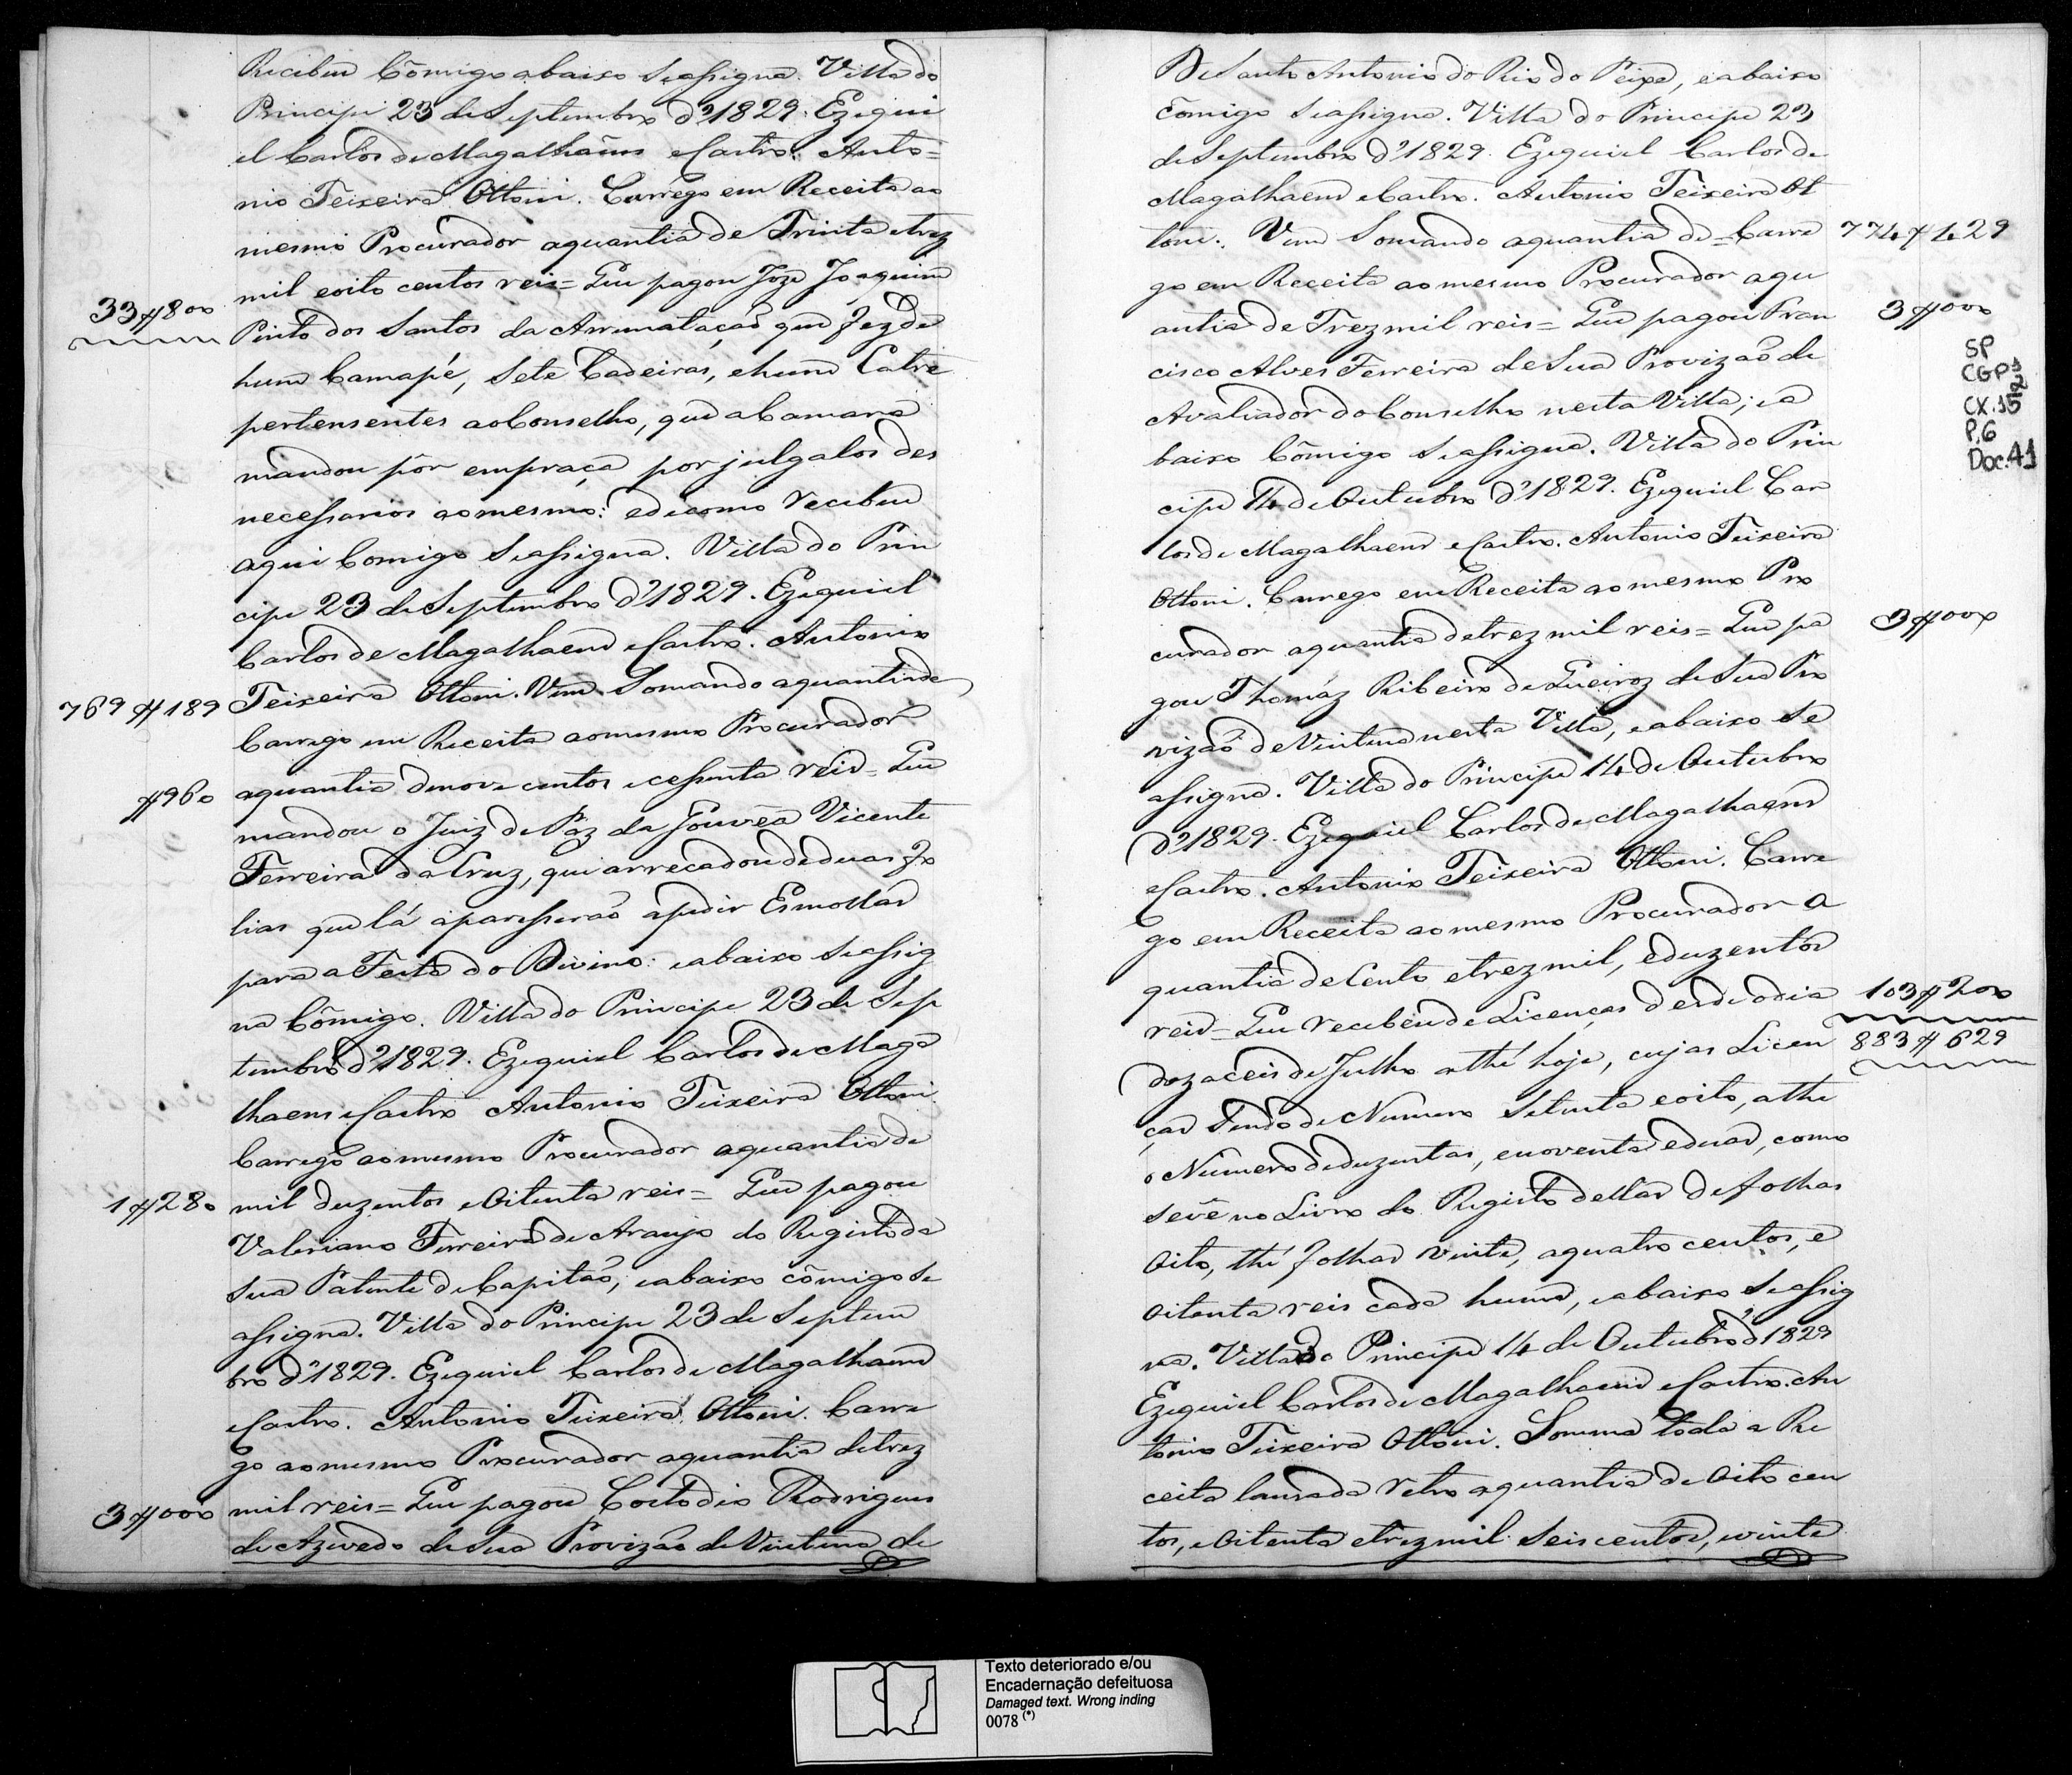 Recibeu Cômigo abaixo Seassigna. Villa do
Principe 23 de Septembro d'1829. Ezequi
el Carlos de Magalhãins eCastro. Anto=
nio Teixeira Ottoni. Carrego em Receita ao
mesmo Procurador aquantia de Trinta etrez
mil eoito centos reis= Que pagou Joze Joaquim
33$800
Pinto dos Santos da Arrematação que fez de
hum Camapé, Sete Cadeiras, ehum Catre
pertensentes aoConselho, que aCamara
mandou pôr empraça por julgalos des
necessarios aomesmo: edecomo recebeu
aqui Comigo Seassigna. Villa do Prin
cipe 23 de Septembro d'1829. Ezequiel
Carlos de Magalhaens eCastro. Antonio
769$189 Teixeira Ottoni. Vem Somando aquantiade
Carrego em Receita aomesmo Procurador
$960 aquantia denove centos ecessenta reis= Que
mandou o Juiz de Páz da Gouvêa Vicente
Ferreira da Cruz, que arrecadou deduas fo
lias que lá aparesserão apedir Esmollas
para a Festa do Divino: eabaixo seassig
na Cômigo. Villa do Principe 23 de Sep
tembro d'1829. Ezequiel Carlos de Maga
lhaens eCastro Antonio Teixeira Ottoni.
Carrego aomesmo Procurador aquantia de
1$280 mil duzentos eOitenta reis= Que pagou
Valeriano Ferreira de Araujo do Registo da
sua Patente de Capitão, eabaixo cômigo se
assigna. Villa do Principe 23 de Septem
bro d'1829. Ezequiel Carlos de Magalhaens
eCastro. Antonio Teixeira Ottoni. Carre
go aomesmo Procurador aquantia detrez
3$000 mil reis= Que pagou Costodio Rodrigues
de Azevedo de Sua Provizão de Vintena de
De Santo Antonio do Rio do Peixe, eabaixo
cômigo seassigna. Villa do Principe 23
de Septembro d'1829. Ezequiel Carlos de
Magalhaens eCastro. Antonio Teixeira Ot
toni. Vem Somando aquantia de= Carre 774$429
go em Receita aomesmo Procurador aqu
antia de Trezmil reis= Que pagou Fran 3$000
cisco Alves Ferreira deSua Provizão de
Avaliador do Conselho nesta Villa; ea
baixo Cômigo Seassigna. Villa do Prin
cipe 14 de Outubro d'1829. Ezequiel Car
los de Magalhaens eCastro. Antonio Teixeira
Ottoni. Carrego em Receita aomesmo Pro
curador aquantia detrez mil reis= Que pa 3$000
gou Thomáz Ribeiro de Queiroz de Sua Pro
vizão deVintena nesta Villa, eabaixo se
assigna. Villa do Principe 14 de Outubro
d'1829. Ezequiel Carlos de Magalhaens
eCastro. Antonio Teixeira Ottoni. Carre
go em Receita aomesmo Procurador a
quantia deCento etrezmil, eduzentos
reis= Que recebeu de Licenças desde odia 103$200
dozaceis de Julho athé hoje, cujas Licen 883$629
ças Sendo de Numero Setenta eoito, athe
o Numero deduzentas, enoventa eduas, como
sevê no Livro do Registo dellas de folhas
Oito, thé folhas vinte, aquatro centos, e
oitenta reis cada huma, eabaixo seassig
na. Villa do Principe 14 de Outubro d'1829
Ezequiel Carlos de Magalhaens eCastro. An
tonio Teixeira Ottoni. Somma toda a Re
ceita lansada retro aquantia de Oito cen
tos, eOitenta etrezmil. Seiscentos, evinte
SP
CGP1
CX.152
P.6
Doc.41
Texto deteriorado e/ou
Encadernação defeituosa
Damaged text. Wrong inding
0078 (*)